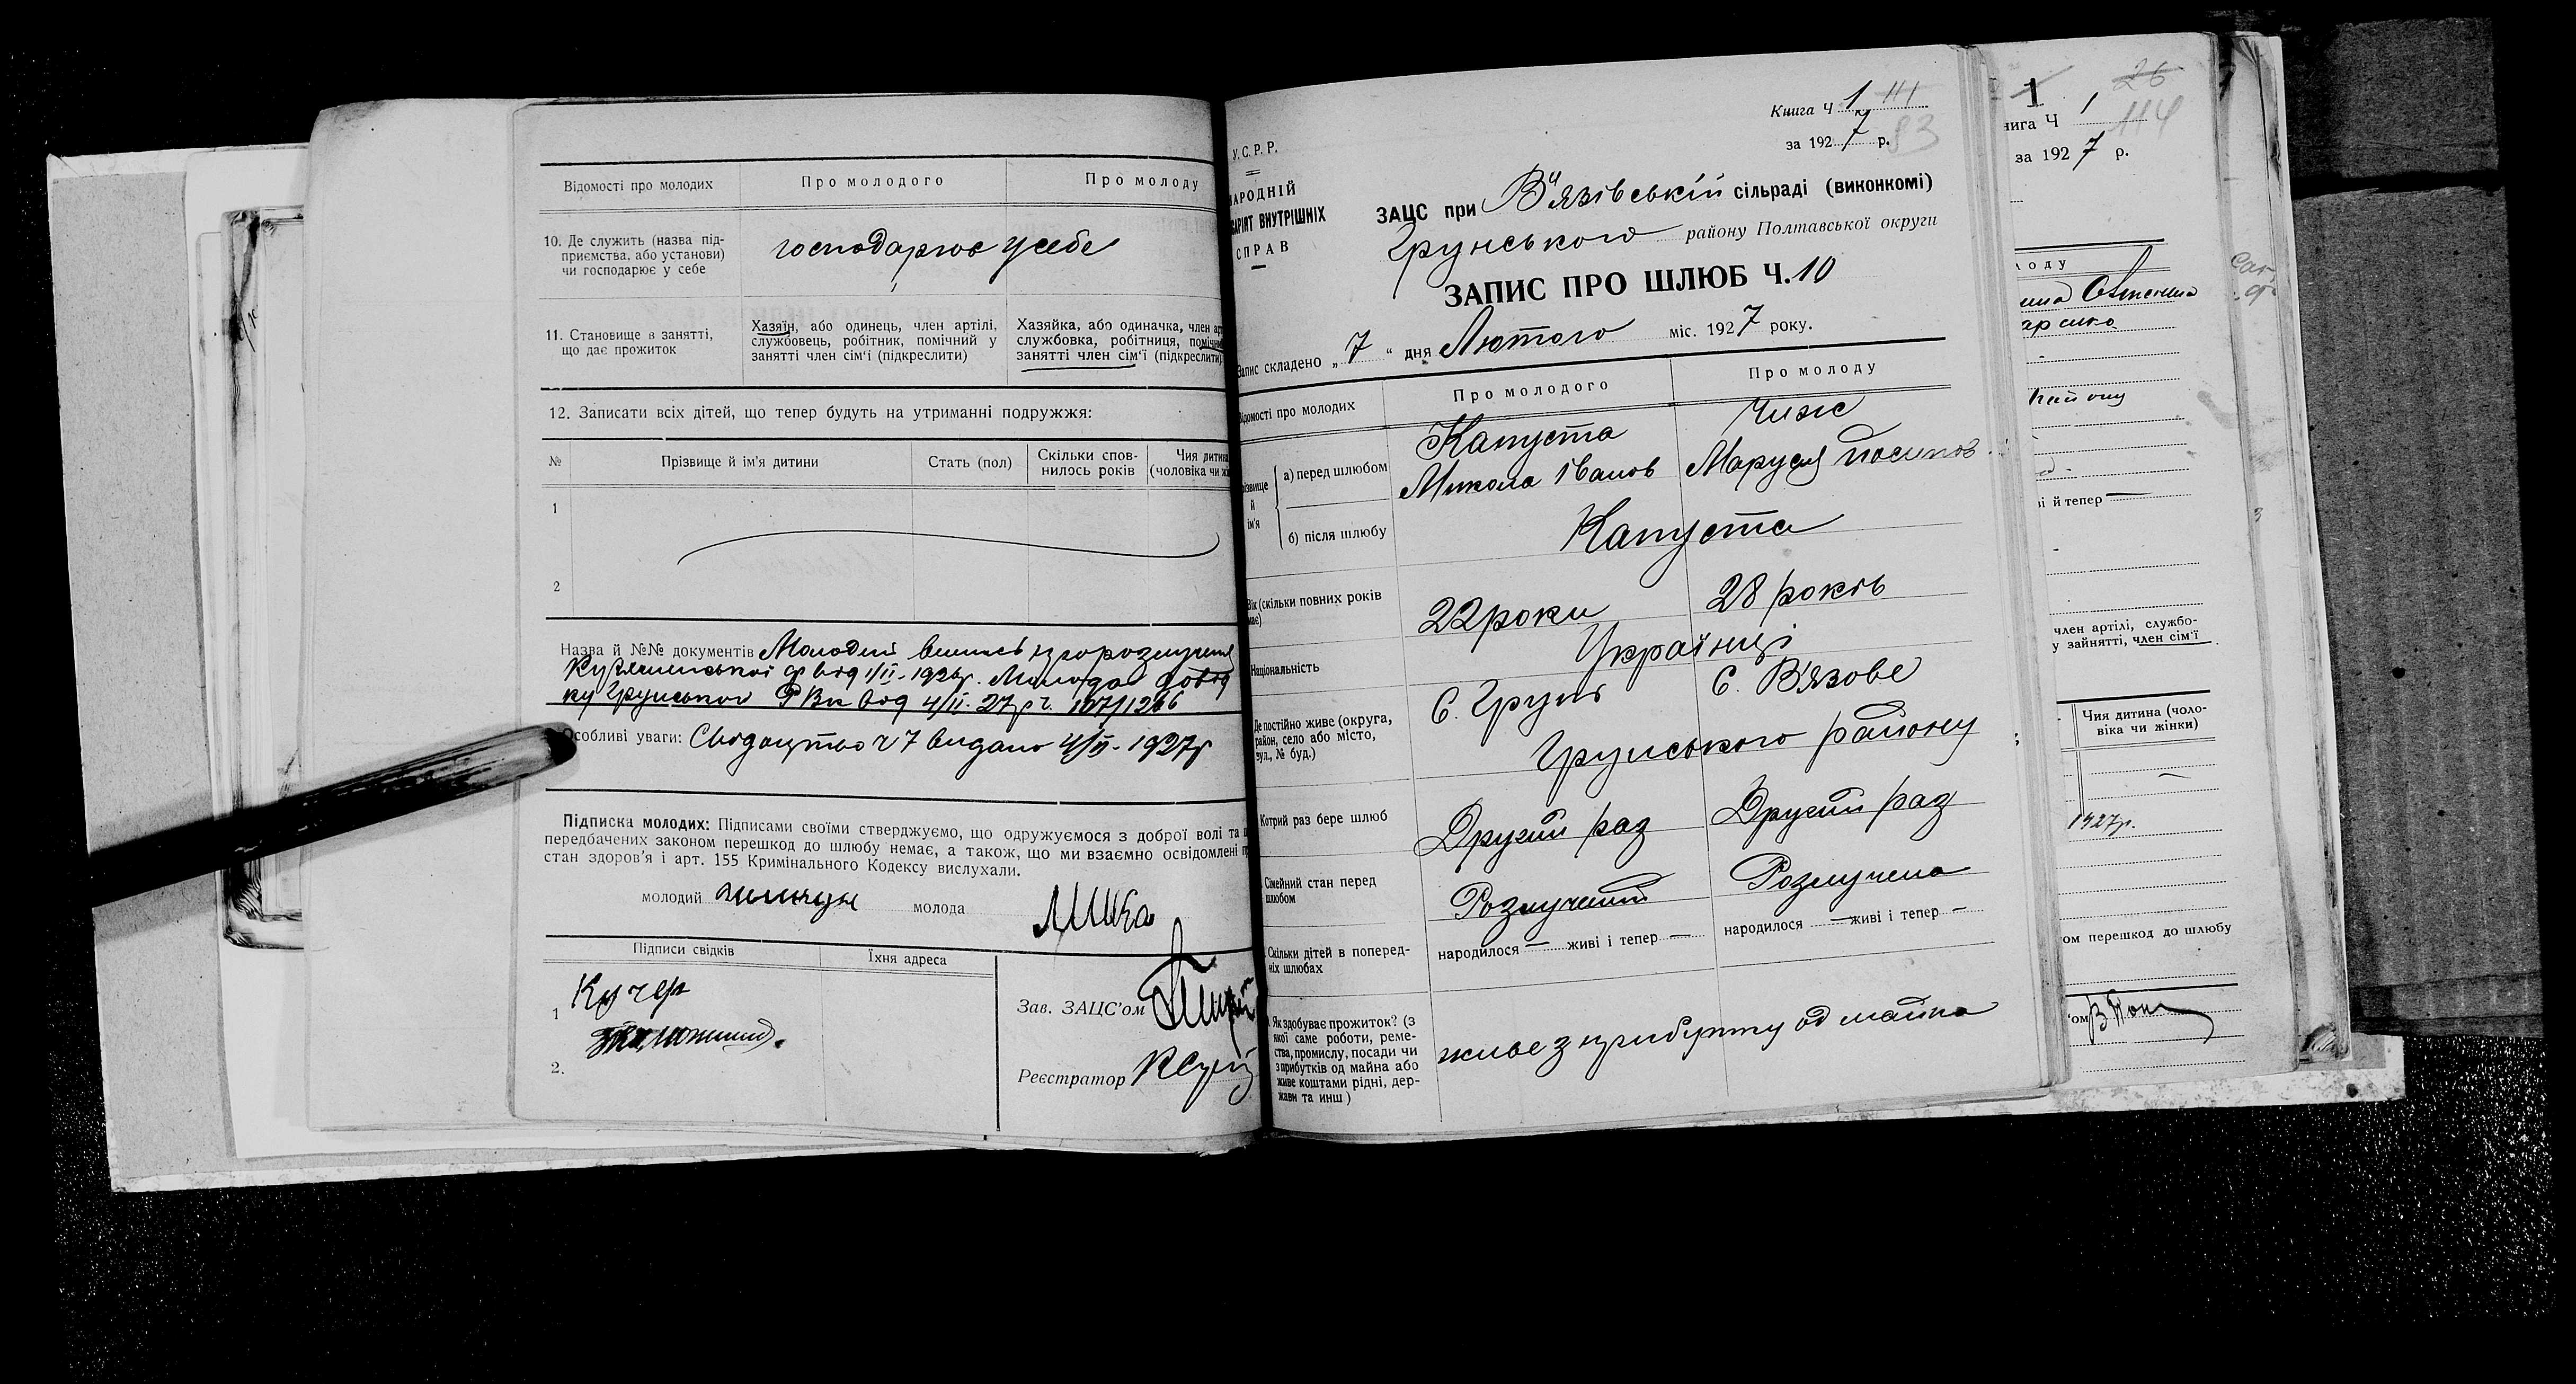 Відомості про молодих
Про молодого
Про молоду
10. Де служить (назва під-
приємства, або установи)
чи господарює у себе
господарює у себе
11. Становище в занятті,
що дає прожиток
Хазяїн, або одинець, член артілі,
службовець, робітник, помічний у
занятті член сім'ї (підкреслити)
Хазяйка, або одиначка, член ар
службовка, робітниця, помічни
занятті член сім'ї (підкреслити)
12. Записати всіх дітей, що тепер будуть на утриманні подружжя:
№
Прізвище й ім'я дитини
Стать (пол)
Скільки спов-
нилось років
Чия дитина
(чоловіка чи жі
1
2
Назва й №№ документів Молодий
від 1/II-192 р. Молода
Грунської РВк від 4/II-27р ч. 107/1266
Особливі уваги: Свідоцтво ч 7 видано 4/II-1927р
Підписка молодих: Підписами своїми стверджуємо, що одружуємося з доброї волі та
передбачених законом перешкод до шлюбу немає, а також, що ми взаємно освідомлені п
стан здоров'я і арт. 155 Кримінального Кодексу вислухали.
молодий
молода
Підписи свідків
Їхня адреса
1 Кучер
2.
Зав. ЗАЦС'ом
Реєстратор
Книга Ч 1 111
за 1927 р. 83
У.С.Р.Р.
НАРОДНІЙ
АРІЯТ ВНУТРІШНІХ
СПРАВ
ЗАЦС при В'язівській сільраді (виконкомі)
Грунського району Полтавської округи
ЗАПИС ПРО ШЛЮБ Ч. 10
Запис складено „7“ дня Лютого міс. 1927 року.
Відомості про молодих
Про молодого
Про молоду
ізвище
й
ім'я
а) перед шлюбом
Капуста
Микола Іванов
Чиж
Маруся Йосипов.
б) після шлюбу
Капуста
Вік (скільки повних років
має)
22 роки
28 років
Національність
Українці
Де постійно живе (округа,
район, село або місто,
вул., № буд.)
С. Грунь
С. В'язове
Грунського району
Котрий раз бере шлюб
Другий раз
Другий раз
Сімейний стан перед
шлюбом
Розлучений
Розлучена
Скільки дітей в поперед-
ніх шлюбах
народилося — живі і тепер —
народилося — живі і тепер —
Як здобуває прожиток? (з
якої саме роботи, реме-
ства, промислу, посади чи
з прибутків од майна або
живе коштами рідні, дер-
жави та инш)
живе з прибутку од майна
1
26
нига Ч 1 114
за 1927 р.
лоду
району
і й тепер —
член артілі, службо-
у зайнятті, член сім'ї
Чия дитина (чоло-
віка чи жінки)
1927р.
ом перешкод до шлюбу
'ом